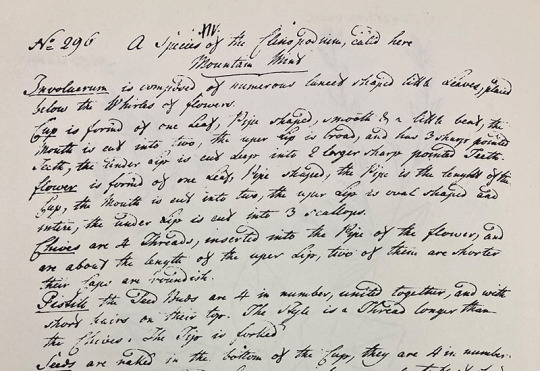 No 296 A Species of the Clinopodium, call'd here
Mountain Mint
Involucrum is composed of numerous lance shaped little Leaves, placed
below the Whirles of flowers.
Cup is form'd of one Leaf, Pipe shaped, smooth & a little bent, the
Mouth is cut into two, the uper Lip is broad, and has 3 sharp pointed
Teeth, the under Lip is cut deep into 2 larger sharp pointed Teeth.
flower is form'd of one Leaf, Pipe shaped, the Pipe is the lenght of the
Cup, the Mouth is cut into two, the uper Lip is oval shaped and
intire, the under Lip is cut into 3 scallops.
Chives are 4 Threads, inserted into the Pipe of the flower, and
are about the length of the uper Lip, two of them are shorter
their Caps are roundish.
Pestile the Seed Buds are 4 in number, united together, and with
short hairs on their top. The Style is a Thread longer than
the Chives. The Tip is forked
Seeds are naked in the bottom of the Cup, they are 4 in number.